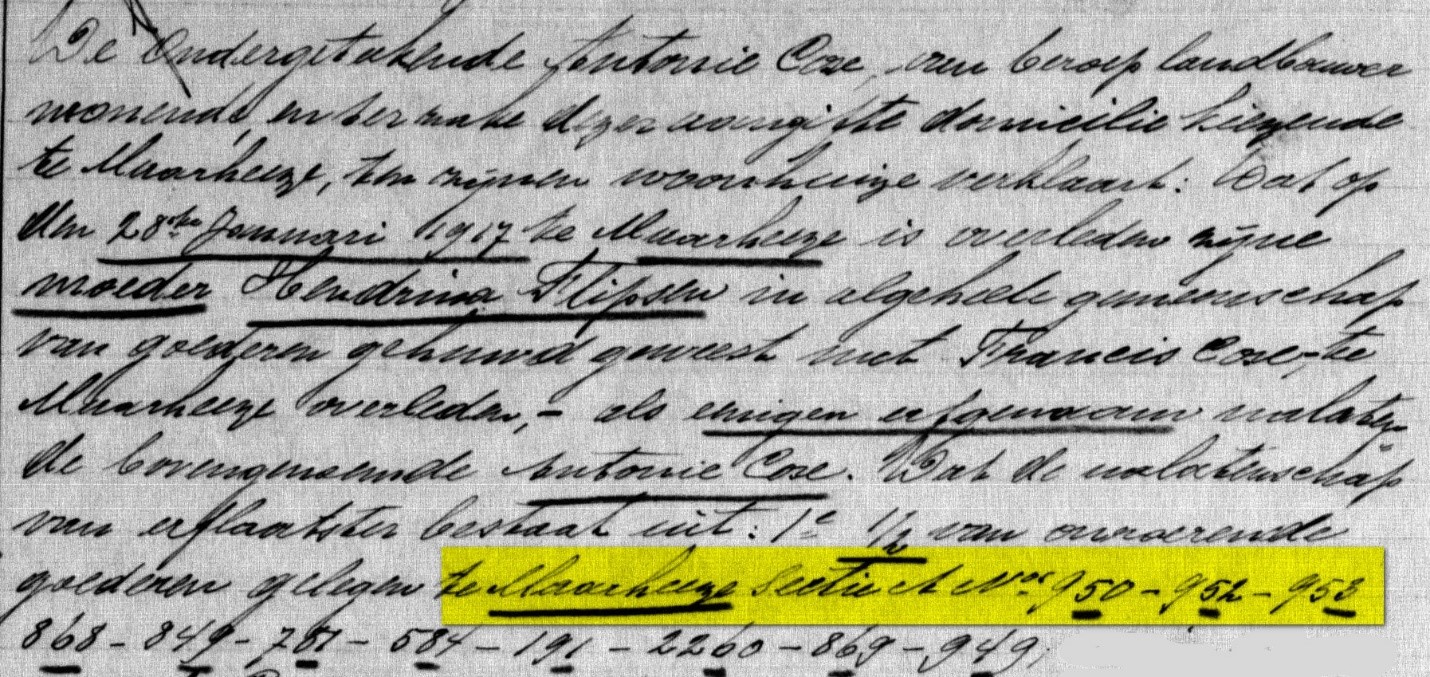 De Ondergetekende Antonie Coxe, van beroep landbouwer
wonende, en ter zake dezer aangifte domicilie kiezende
te Maarheeze, ten zijnen woonhuize verklaart: Dat op
den 28ste Januari 1917 te Maarheeze is overleden zijne
moeder Hendrina Flipsen in algeheele gemeenschap
van goederen gehuwd geweest met Francis Coxe, te
Maarheeze overleden, - als enigen erfgenaam nalaten-
de bovengenoemde Antonie Coxe. Dat de nalatenschap
van erflaatster bestaat uit: 1e 1/2 van onroerende
goederen gelegen te Maarheeze Sectie A Nos 950 - 952 - 953
868 - 849 - 781 - 584 - 191 - 2260 - 869 - 949;